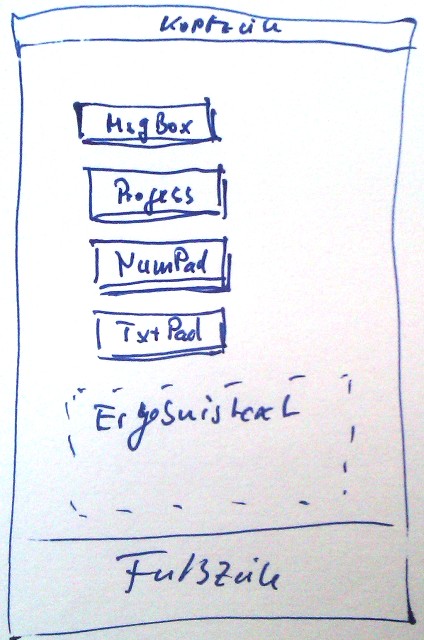 Kopfzeile
MsgBox
Progess
NumPad
TxtPad
Ergebnistext
Fußzeile